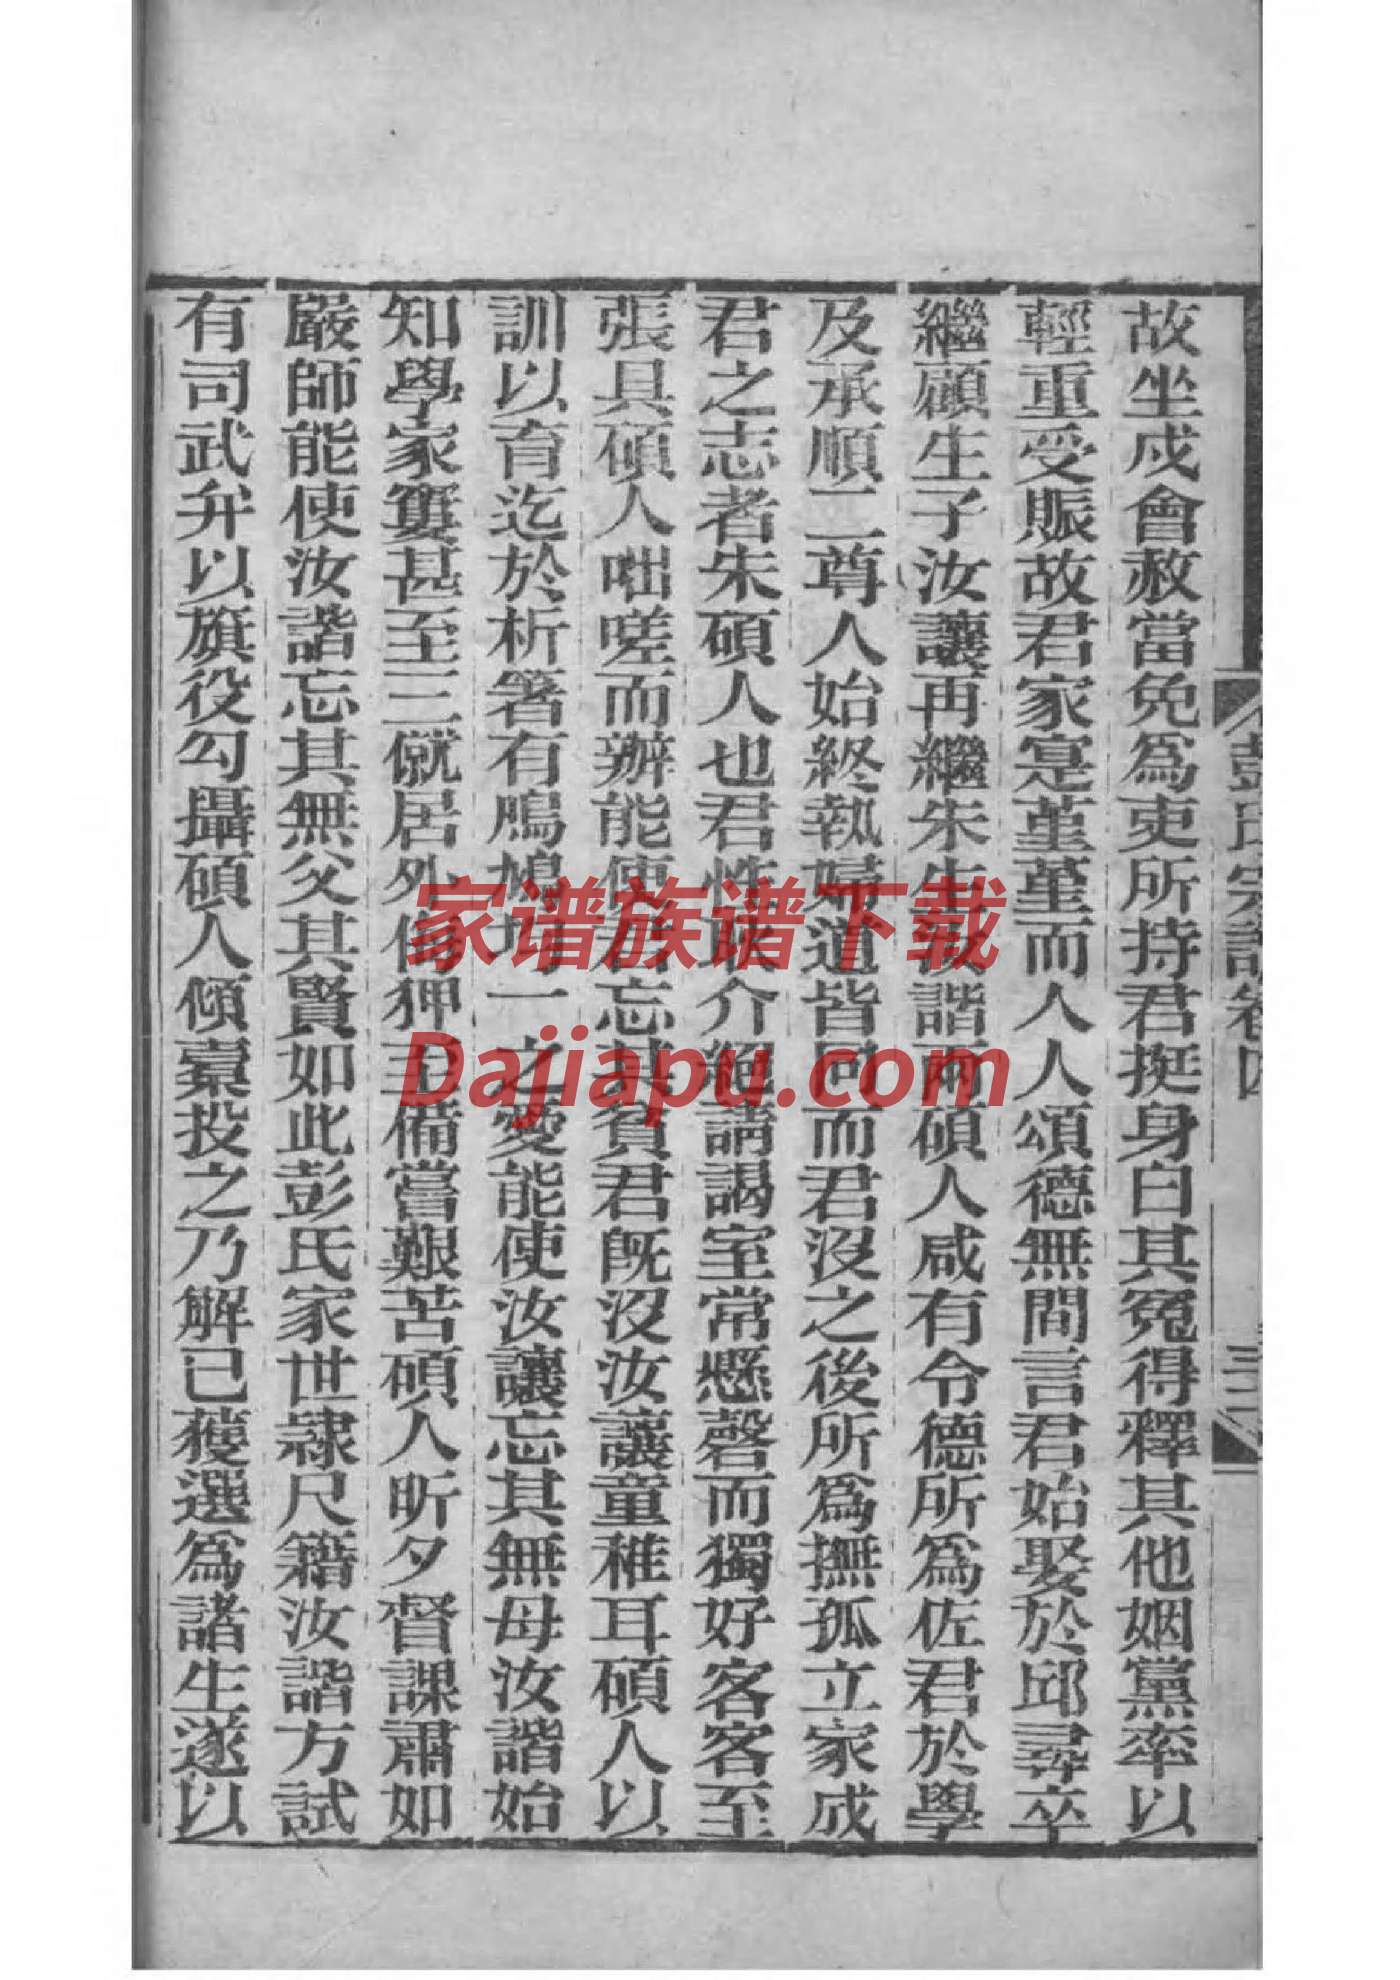 故坐戍會赦當免爲吏所持君挺身白其冤得釋其他姻黨率以
輕重受賑故君家寔堇堇而人人頌德無間言君始娶於邱尋卒
繼顧生子汝讓再繼朱生汝諧兩碩人咸有令德所爲佐君於學
及承順二尊人始終執婦道皆同而君沒之後所爲撫孤立家成
君之志者朱碩人也君性耿介絕請謁室常懸磬而獨好客客至
張具碩人咄嗟而辦能使君忘其貧君旣沒汝讓童稚耳碩人以
訓以育迄於析箸有鳲鳩均一之愛能使汝讓忘其無母汝諧始
知學家窶甚至三僦居外侮狎至備嘗艱苦碩人昕夕督課肅如
嚴師能使汝諧忘其無父其賢如此彭氏家世隸尺籍汝諧方試
有司武弁以旗役勾攝碩人傾橐投之乃解已獲選爲諸生遂以
彭氏宗譜卷四
家谱族谱下载
Dajiapu.com